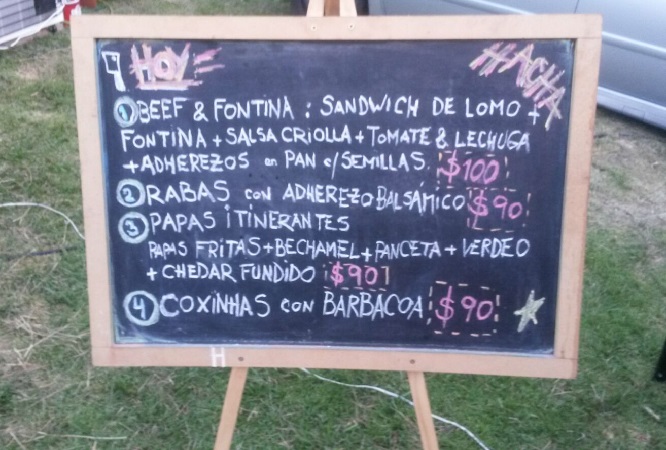 HOY =
HACHA
1 BEEF & FONTINA : SANDWICH DE LOMO +
FONTINA + SALSA CRIOLLA + TOMATE & LECHUGA
+ ADHEREZOS en PAN c/SEMILLAS. $100
2 RABAS con ADHEREZO BALSÁMICO $90
3 PAPAS ITINERANTES
PAPAS FRITAS + BECHAMEL + PANCETA + VERDEO
+ CHEDAR FUNDIDO $90
4 COXINHAS con BARBACOA $90